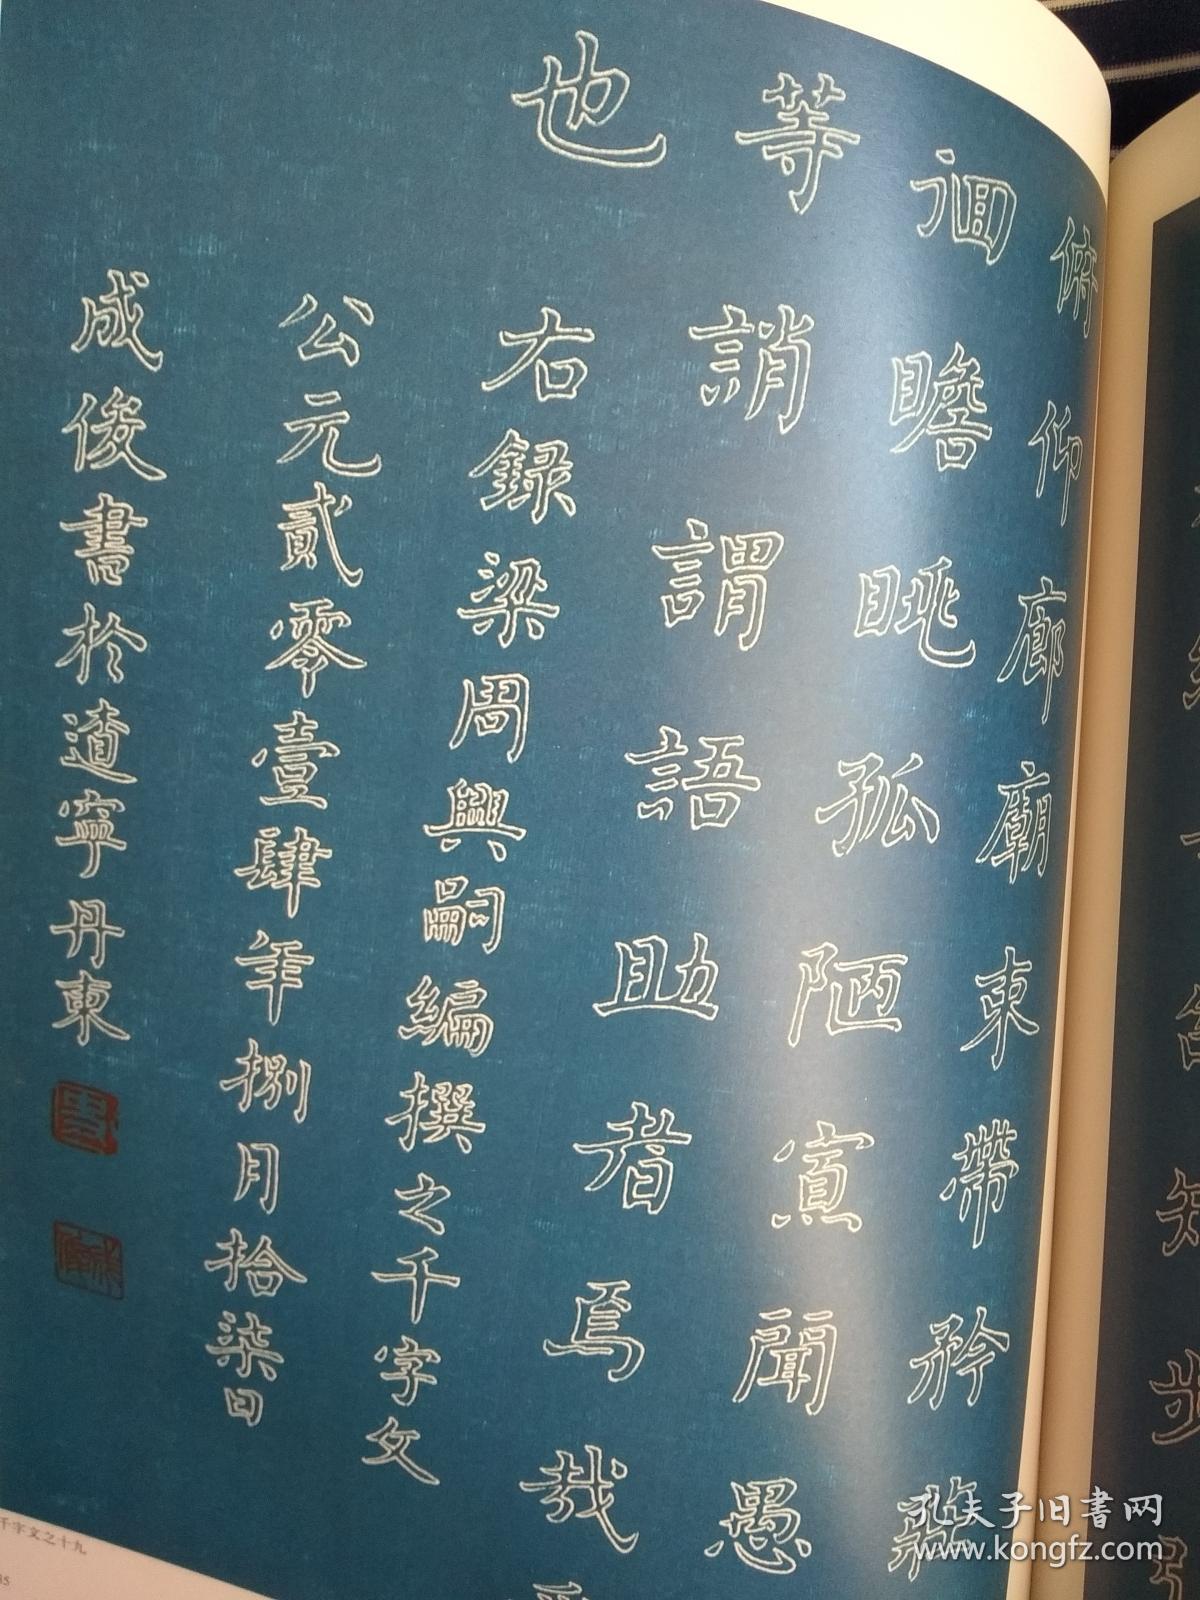 俯仰廊廟束帶矜莊
徊瞻眺孤陋寡聞愚
等誚謂語助者焉哉
也
右録梁周興嗣編撰之千字文
公元貳零壹肆年捌月拾柒日
成俊書於遼寧丹東
千字文之十九
孔夫子旧书网
www.kongfz.com